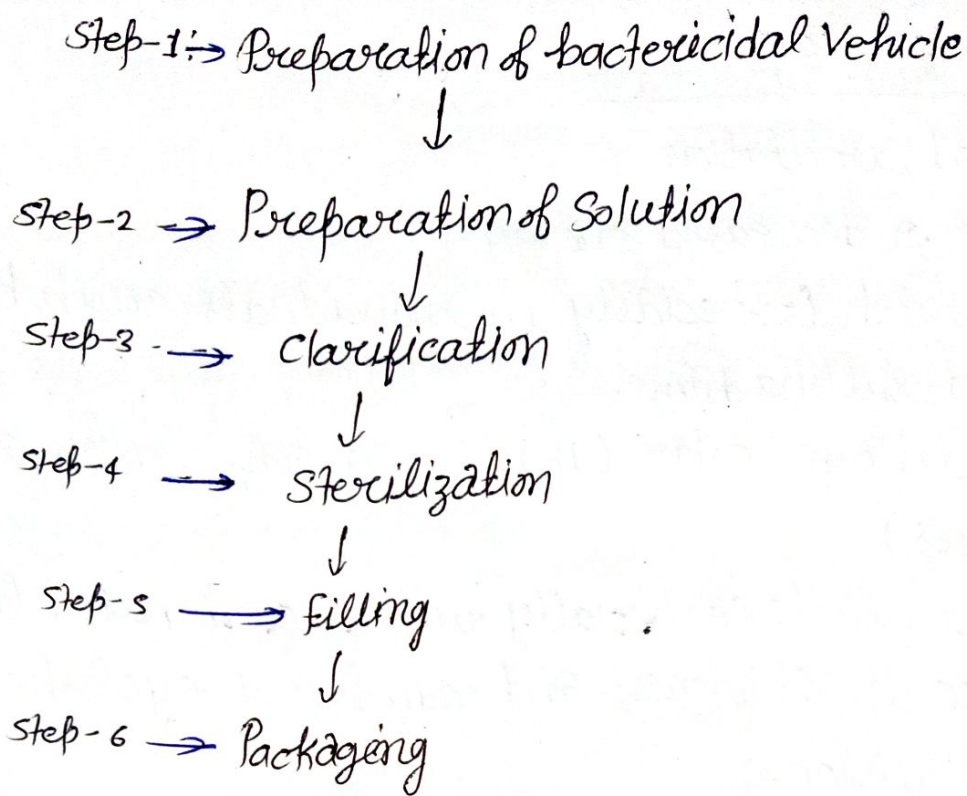 Step-1:→ Preparation of bactericidal Vehicle
↓
Step-2 → Preparation of Solution
↓
Step-3 → Clarification
↓
Step-4 → Sterilization
↓
Step-5 → filling
↓
Step-6 → Packaging